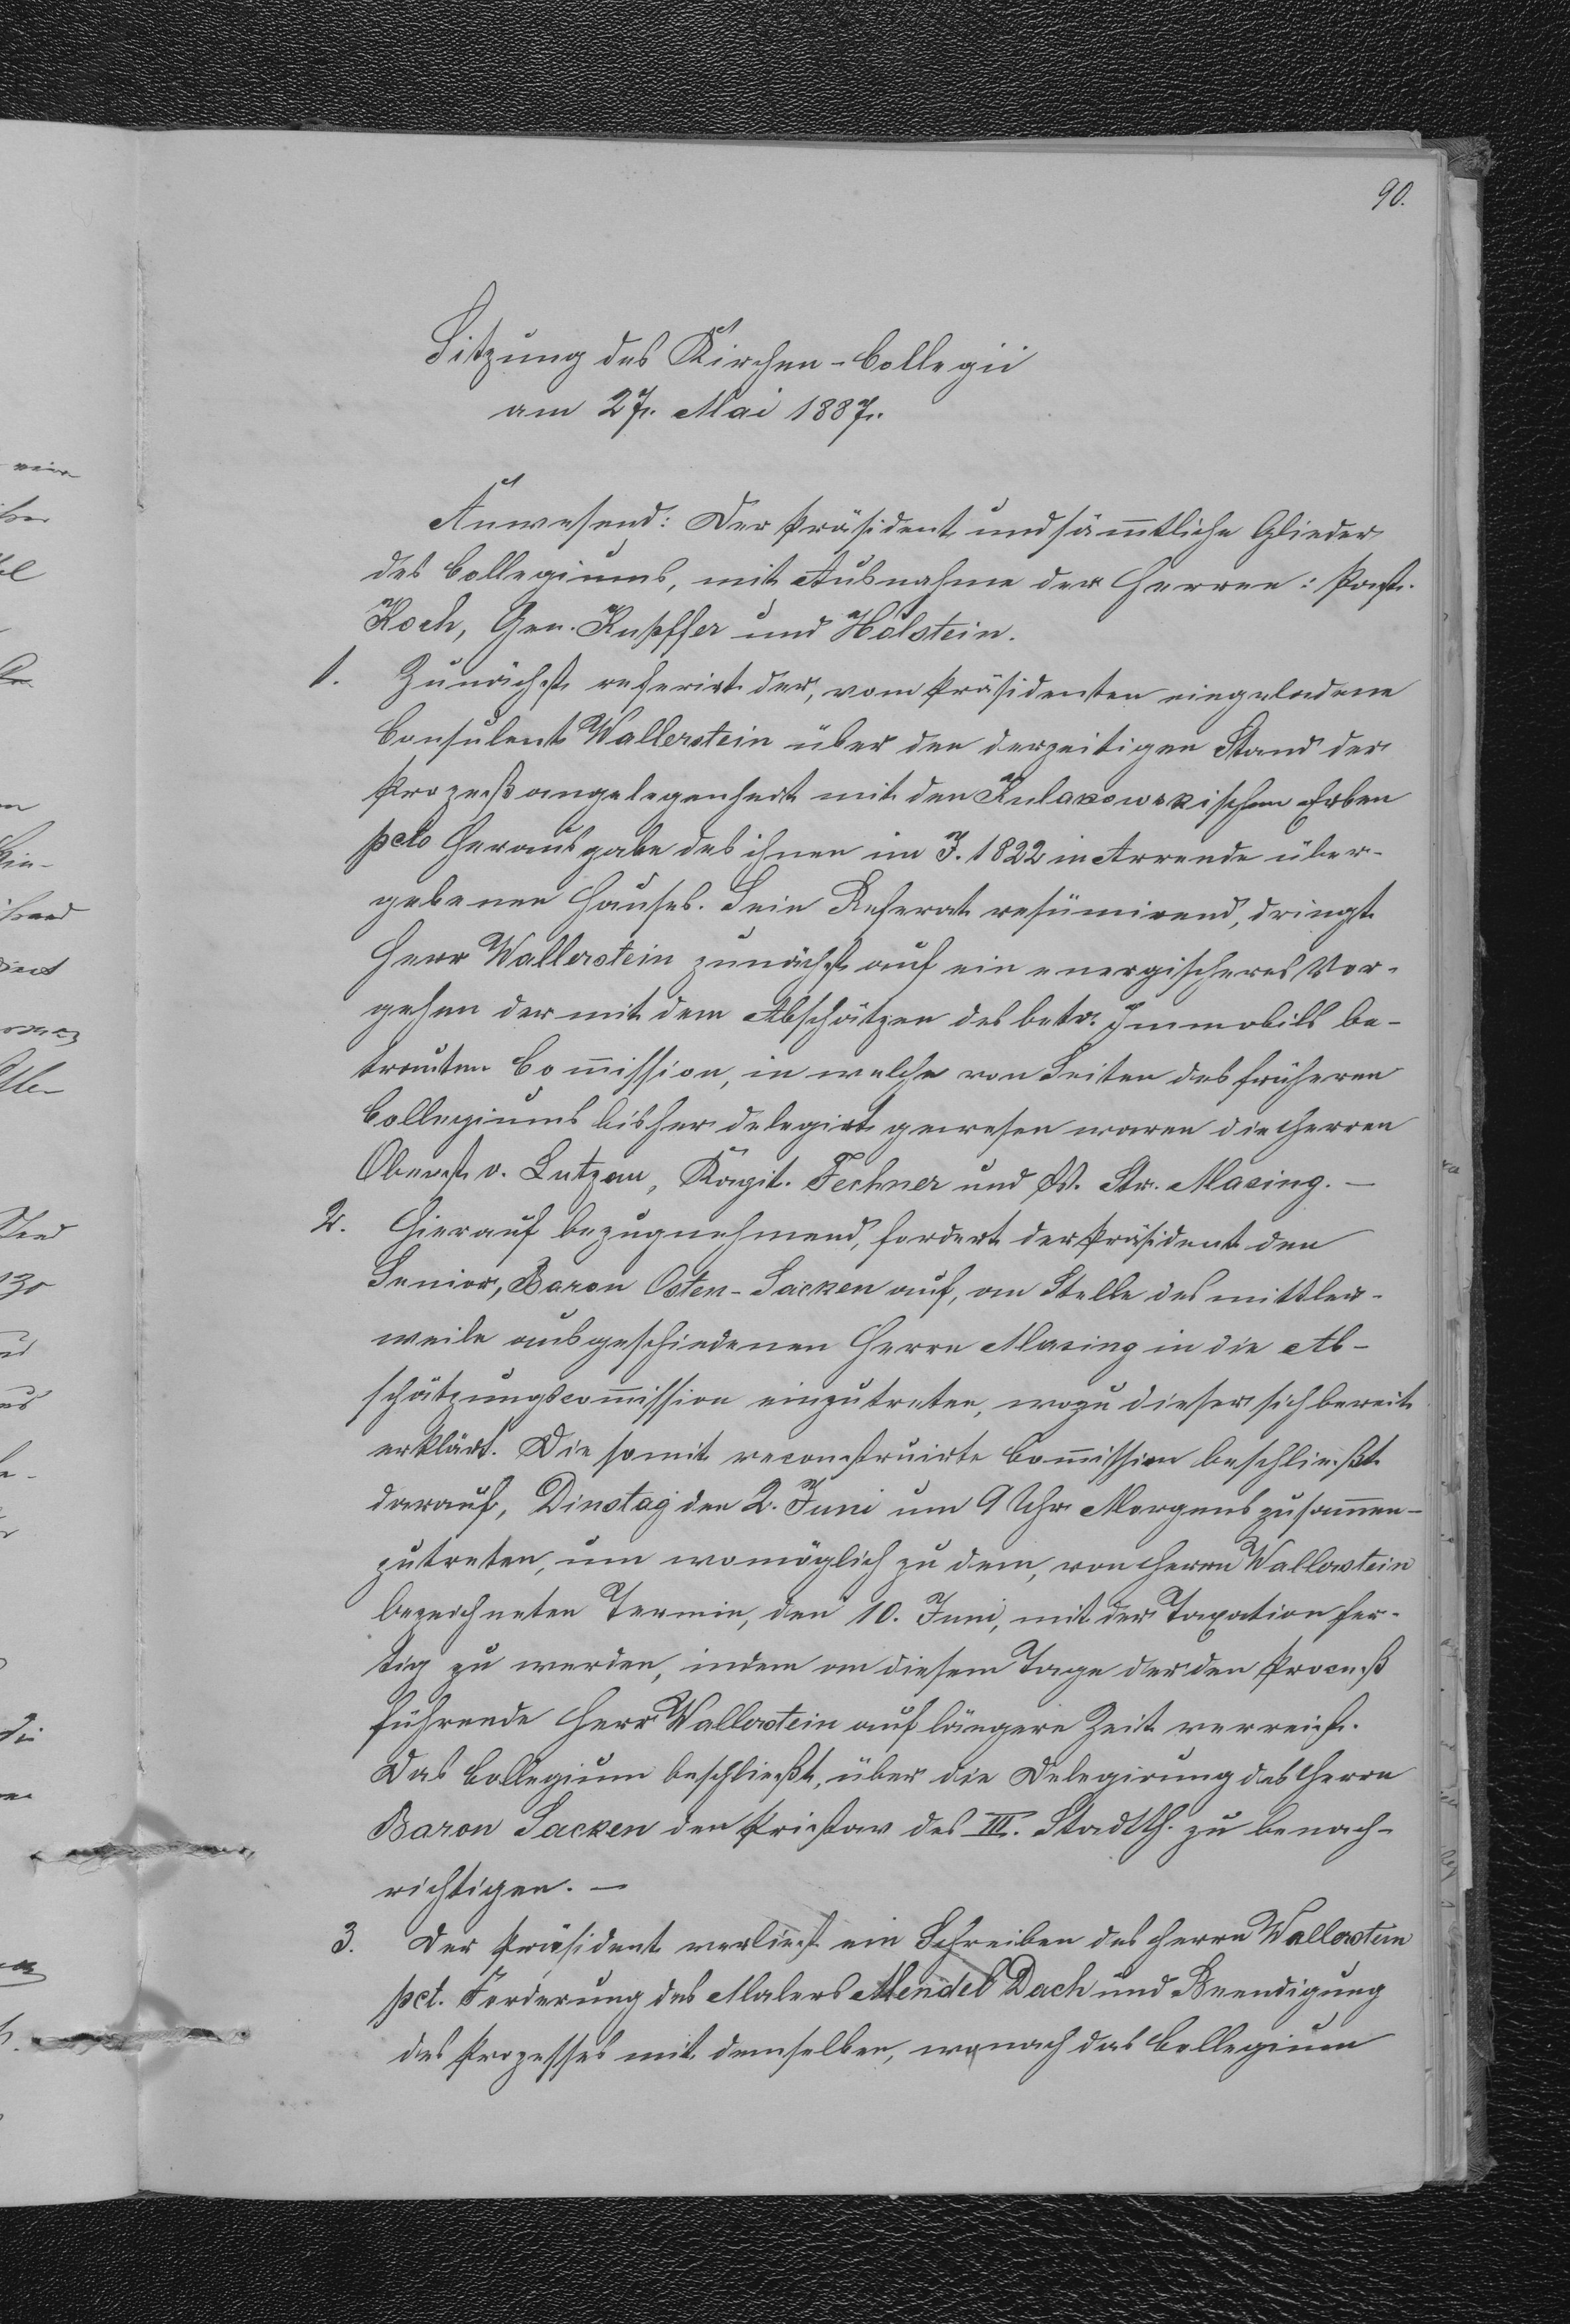 90.
Sitzung des Kirchen-Collegii
am 27. Mai 1887.
Anwesend: Der Präsident und sämtliche Glieder
des Collegiums, mit Ausnahme der Herren: Past.
Koch, Gen. Kupffer und Holstein.
1. Zunächst referirt der, vom Präsidenten eingeladene
Consulent Wallerstein über den derzeitigen Stand der
Prozeßangelegenheit mit den Kulakowskischen Erben
pcto Herausgabe des ihnen im J. 1822 in Arrende über-
gebenen Hauses. Sein Referat resümirend, dringt
Herr Wallerstein zunächst auf ein energischeres Vor-
gehen der mit dem Abschätzen des betr. Immobils be-
trauten Commission, in welche von Seiten des früheren
Collegiums bisher delegirt gewesen waren die Herren
Oberst v. Lutzau, Kapit. Fechner und W. Str. Masing. —
2. Hierauf bezugnehmend, fordert der Präsident den
Senior, Baron Osten-Sacken auf, an Stelle des mittler-
weile ausgeschiedenen Herrn Masing in die Ab-
schätzungscommission einzutreten, wozu dieser sich bereit
erklärt. Die somit reconstruirte Commission beschließt
darauf, Dinstag den 2. Juni um 9 Uhr Morgens zusammen-
zutreten, um womöglich zu dem, von Herrn Wallerstein
bezeichneten Termin, den 10. Juni, mit der Taxation fer-
tig zu werden, indem an diesem Tage der den Proceß
führende Herr Wallerstein auf längere Zeit verreist.
Das Collegium beschließt, über die Delegirung des Herrn
Baron Sacken den Pristaw des III. Stadtth. zu benach-
richtigen. —
3. Der Präsident verliest ein Schreiben des Herrn Wallerstein
pct. Forderung des Malers Mendel Dach und Beendigung
des Prozesses mit demselben, wonach das Collegium